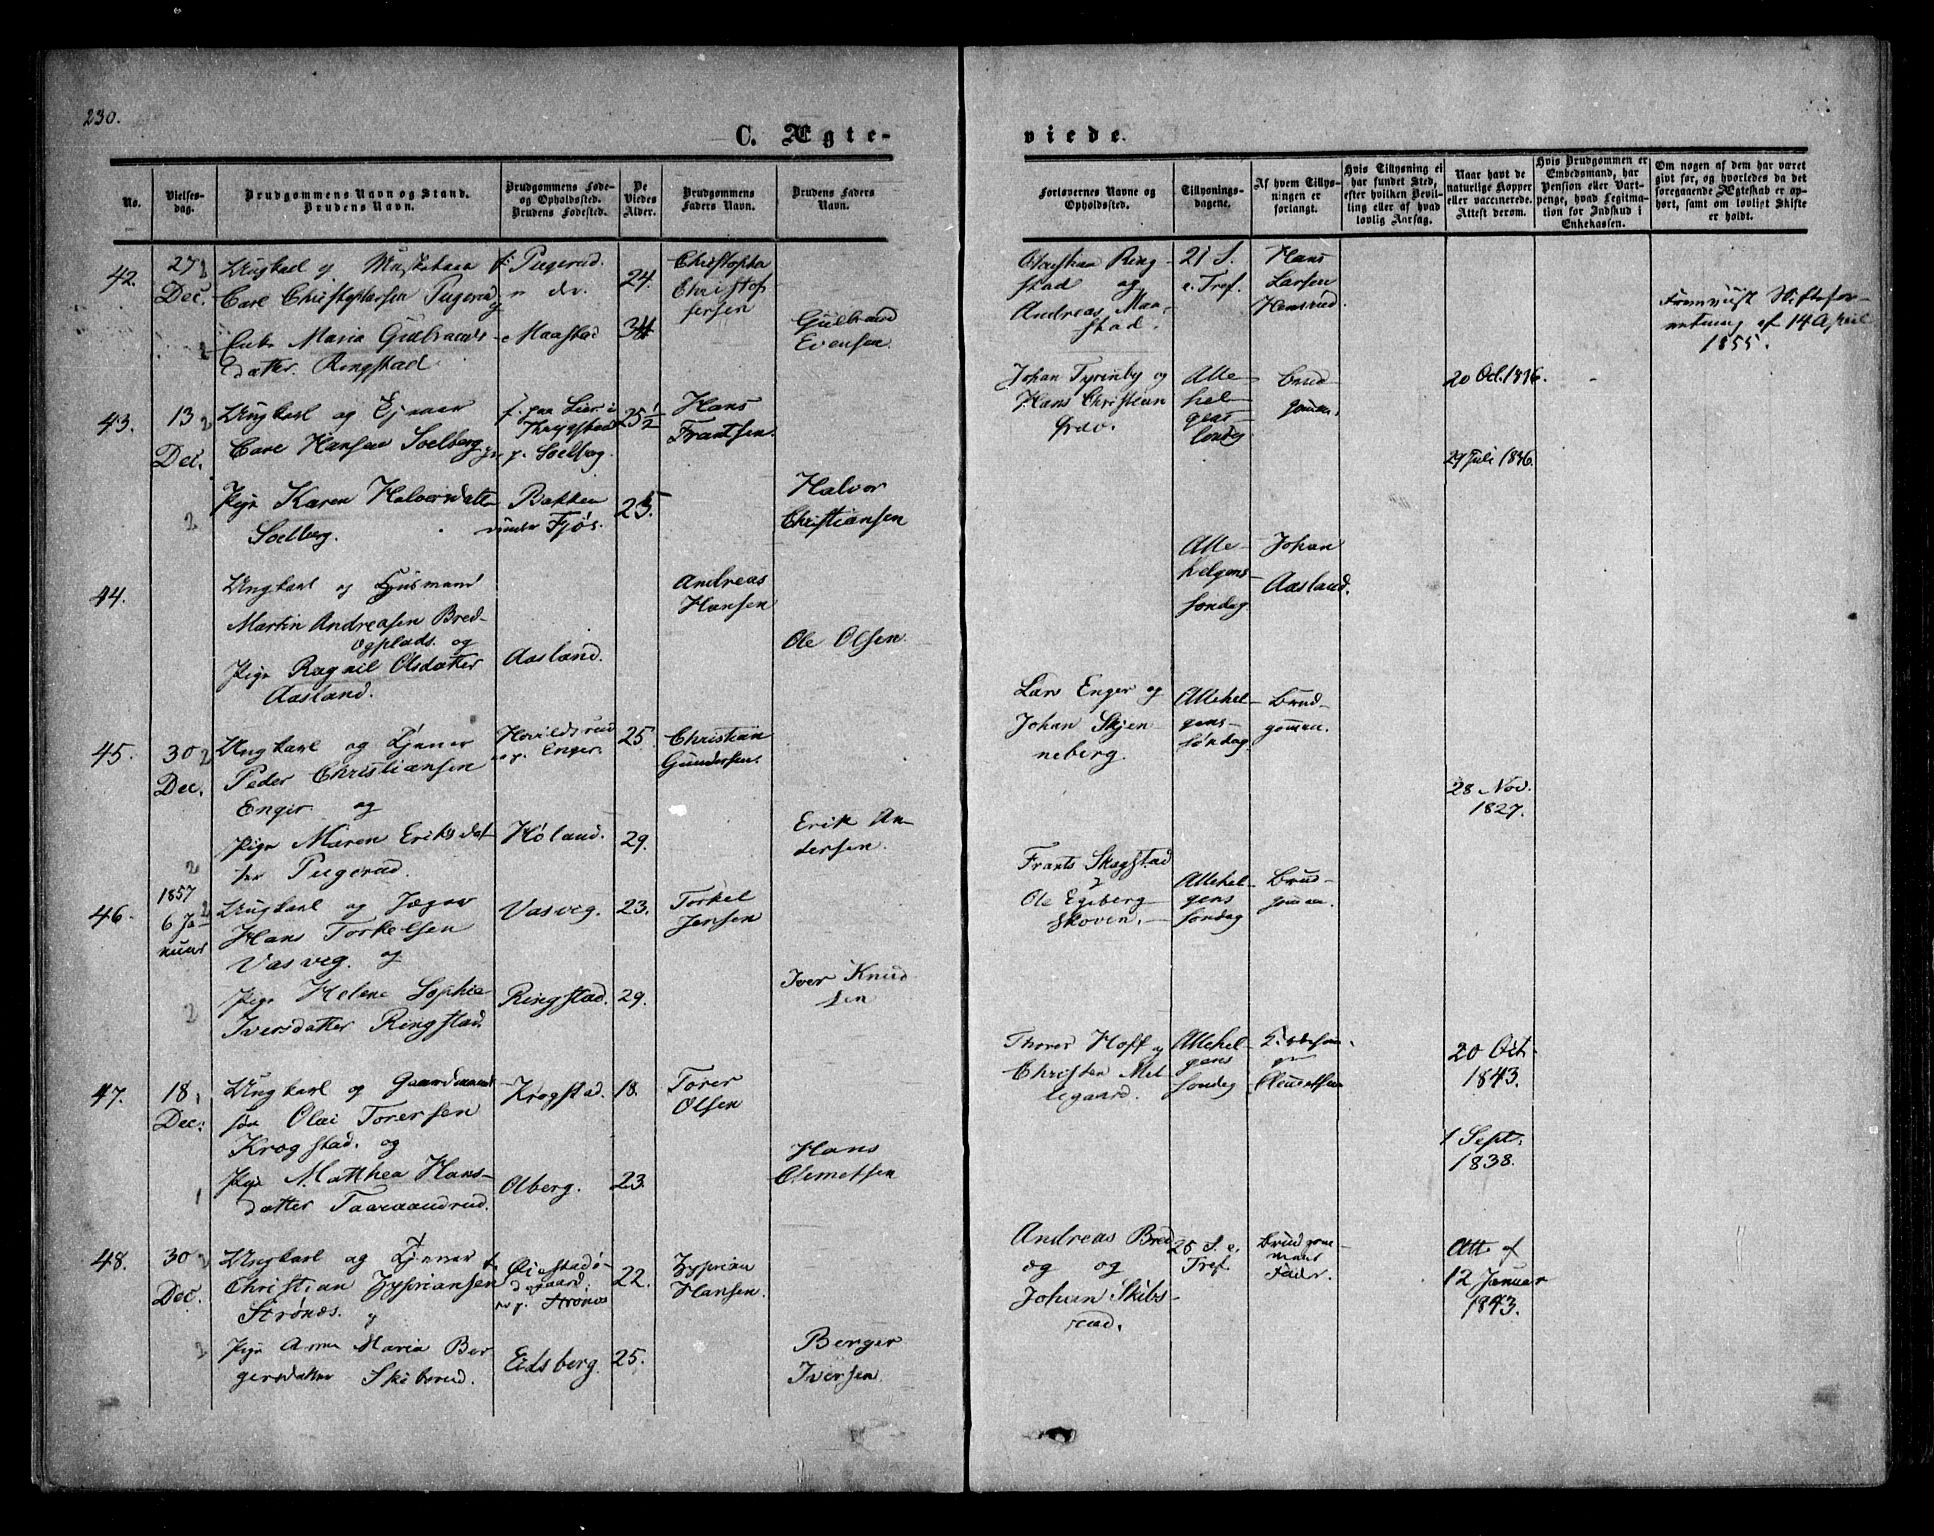 230.
C. Ægte-
viede.
No.
Vielses-
dag.
Brudgommens Navn og Stand.
Brudens Navn.
Brudgommens Føde-
og Opholdssted.
Brudens Fødested.
De
Viedes
Alder.
Brudgommens
Faders Navn.
Brudens Faders
Navn.
Forlovernes Navne og
Opholdssted.
Tillysnings-
dagene.
Af hvem Tillys-
ningen er
forlangt.
Hvis Tillysning ei
har fundet Sted,
efter hvilken Bevil-
ling eller af hvad
lovlig Aarsag.
Naar havt de
naturlige Kopper
eller vaccinerede.
Attest derom.
Hvis Brudgommen er
Embedsmand, har
Pension eller Vart-
penge, hvad Legitima-
tion for Indskud i
Enkekassen.
Om nogen af dem har været
givt før, og hvorledes da det
foregaaende Ægteskab er op-
hørt, samt om lovligt Skifte
er holdt.
42.
27
Dec.
Ungkarl og
Carl Christophersen Pugerud
Enke Maria Gulbrands
datter Ringstad.
f. Pugerud.
Maastad
24.
34
Christophe
Christof
fersen
Gulbrand
Evensen
Christian Ring
stad og
Andreas Maa
stad.
21 S.
e. Tref.
Hans
Larsen
Hensrud.
Fremviist Skiftefor-
retning af 14 April
1855.
43.
13
Dec.
Ungkarl og
Carl Hansen Soelberg
Pige Karen Halvorsdatter
Soelberg.
f. paa Lier i
p. Soelberg
Bakken
under Fjøs.
25 1/2
25.
Hans
Frantsen.
Halvor
Christiansen
Johan Tyrinby og
Hans Christian
Alle
hel
gens
søndag
Brud
gommen.
20 Oct. 1836.
29 Juli 1836.
44.
Ungkarl og Huusmand
Martin Andreasen Bred-
ogplads. og
Pige Ragnil Olsdatter
Aasland.
Aasland.
Andreas
Hansen
Ole Olsen
Alle
helgens
søndag
Johan
Aasland.
45.
30
Dec.
Ungkarl og Tjener
Peder Christiansen
Enger og
Pige Maren Eriksdat-
ter Pugerud.
p. Enger.
Høland.
25
29.
Christian
Gundersen.
Erik An
dersen.
Lars Enger og
Johan Skjen
neberg.
Allehel
gens
søndag
Brud
gommen.
28 Nov.
1827.
46.
1857
6 Ja
nuar
Ungkarl og Jæger
Hans Torkelsen
Vasveg. og
Pige Helene Sophie
Iversdatter Ringstad.
Vasveg.
Ringstad.
23.
29.
Torkel
Jensen
Iver Knud
sen
Frants Skogstad
Ole Egeberg
skoven.
Allehel
gens
søndag
Brud-
gommen.
47.
18
Dec.
Ungkarl og Gaardmands
søn Olai Torersen
Krogstad. og
Pige Matthea Hans-
datter Taaraandrud.
Krogstad.
Aberg.
18.
23.
Torer
Olsen
Hans
Clemetsen
Thorer Hoff og
Christen Mel
legaard.
Allehel
gens
søndag
20 Oct.
1843.
1 Sept.
1838.
48.
30
Dec.
Ungkarl og Tjener
Christian Zypriansen
Strønæs. og
Pige Anne Maria Ber
gersdatter Skibsrud.
p. Strønæs
Eidsberg.
22.
25.
Zyprian
Hansen
Berger
Iversen
Andreas Bred
og og
Johan Skibs-
rud.
25 S. e.
Tref.
Brudgom-
mens
Fader.
Att. af
12 Januar
1843.